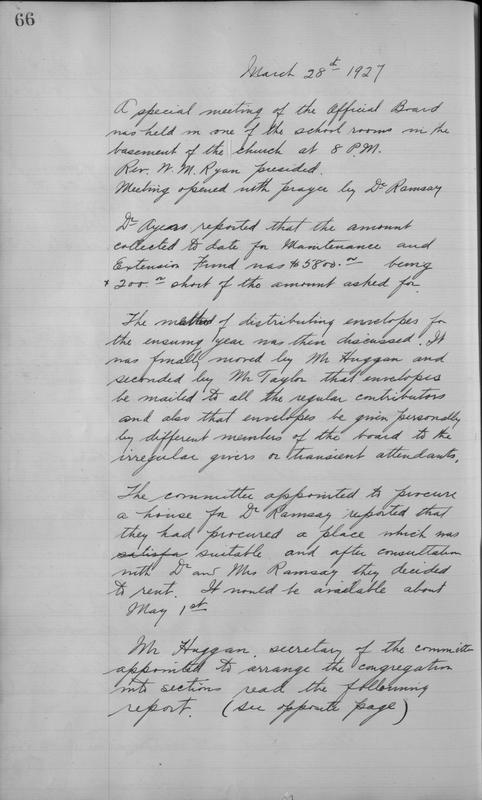 66
March 28th 1927
A special meeting of the Official Board
was held in one of the school rooms in the
basement of the church at 8 P.M.
Rev. W. M. Ryan presided.
Meeting opened with prayer by Dr Ramsay
Dr Ayears reported that the amount
collected to date for Maintenance and
Extension Fund was $5800.00 being
$200.00 short of the amount asked for.
The method of distributing envelopes for
the ensuing year was then discussed. It
was finally moved by Mr Huggan and
seconded by Mr Taylor that envelopes
be mailed to all the regular contributors
and also that envelopes be given personally
by different members of the board to the
irregular givers or transient attendants.
The committee appointed to procure
a house for Dr Ramsay reported that
they had procured a place which was
satisfa suitable and after consultation
with Dr and Mrs Ramsay they decided
to rent. It would be available about
May 1st
Mr Huggan, secretary of the committee
appointed to arrange the congregation
into sections read the following
report. (see opposite page)